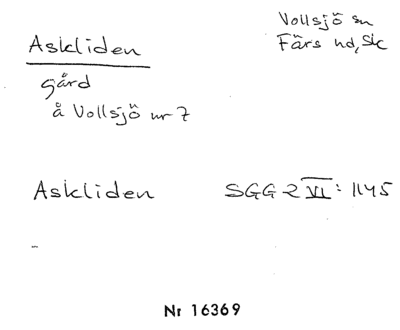 Askliden
Vollsjö sn
Färs hd, Sk
gård
å Vollsjö nr 7
Askliden SGG 2 VI: 1145
Nr 16369